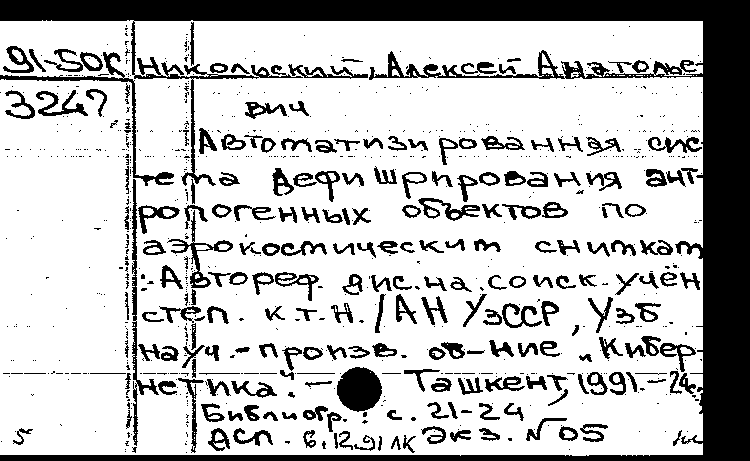 91-50К Никольский, Алексей Анатолье-
3247 вич
Автоматизированная сис-
тема дефишрирования ант-
ропогенных объектов по
аэрокосмическим снимкам
: Автореф. дис. на. соиск. учён
степ. к.т.н. / АН УзССР, Узб.
науч.-произв. об-ние „Кибер-
нетика". - Ташкент, 1991. - 24с.
Библиогр.: с. 21-24
5 ДСП. 6.12.91 ЛК Экз. №05